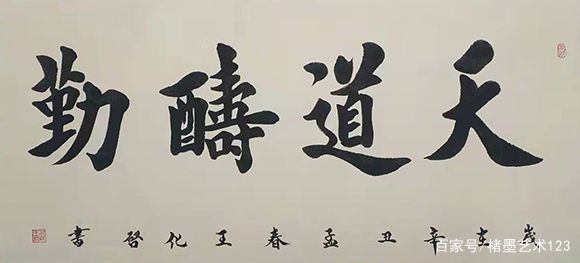 天道醻勤
歲在辛丑孟春王化啓書
百家号/楮墨艺术123